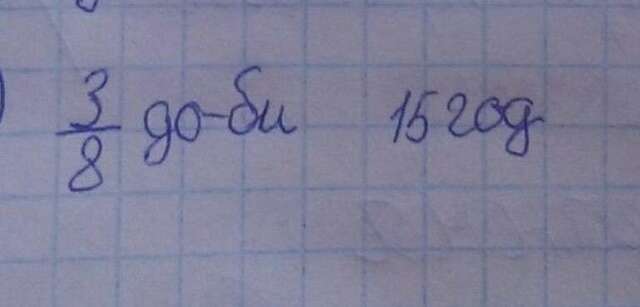 3/8 до-би 15 год